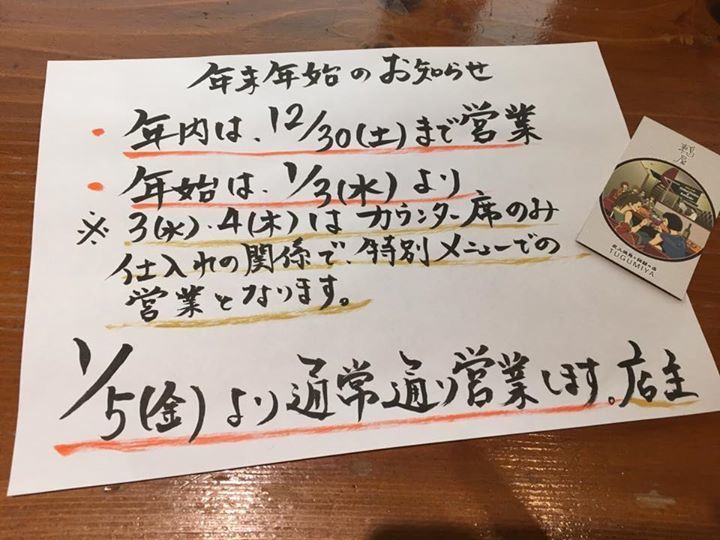 年末年始のお知らせ
・年内は、12/30(土)まで営業
・年始は、1/3(水)より
※3(水)・4(木)はカウンター席のみ
仕入れの関係で、特別メニューでの
営業となります。
1/5(金)より通常通り営業します。店主
FUGUMIYA